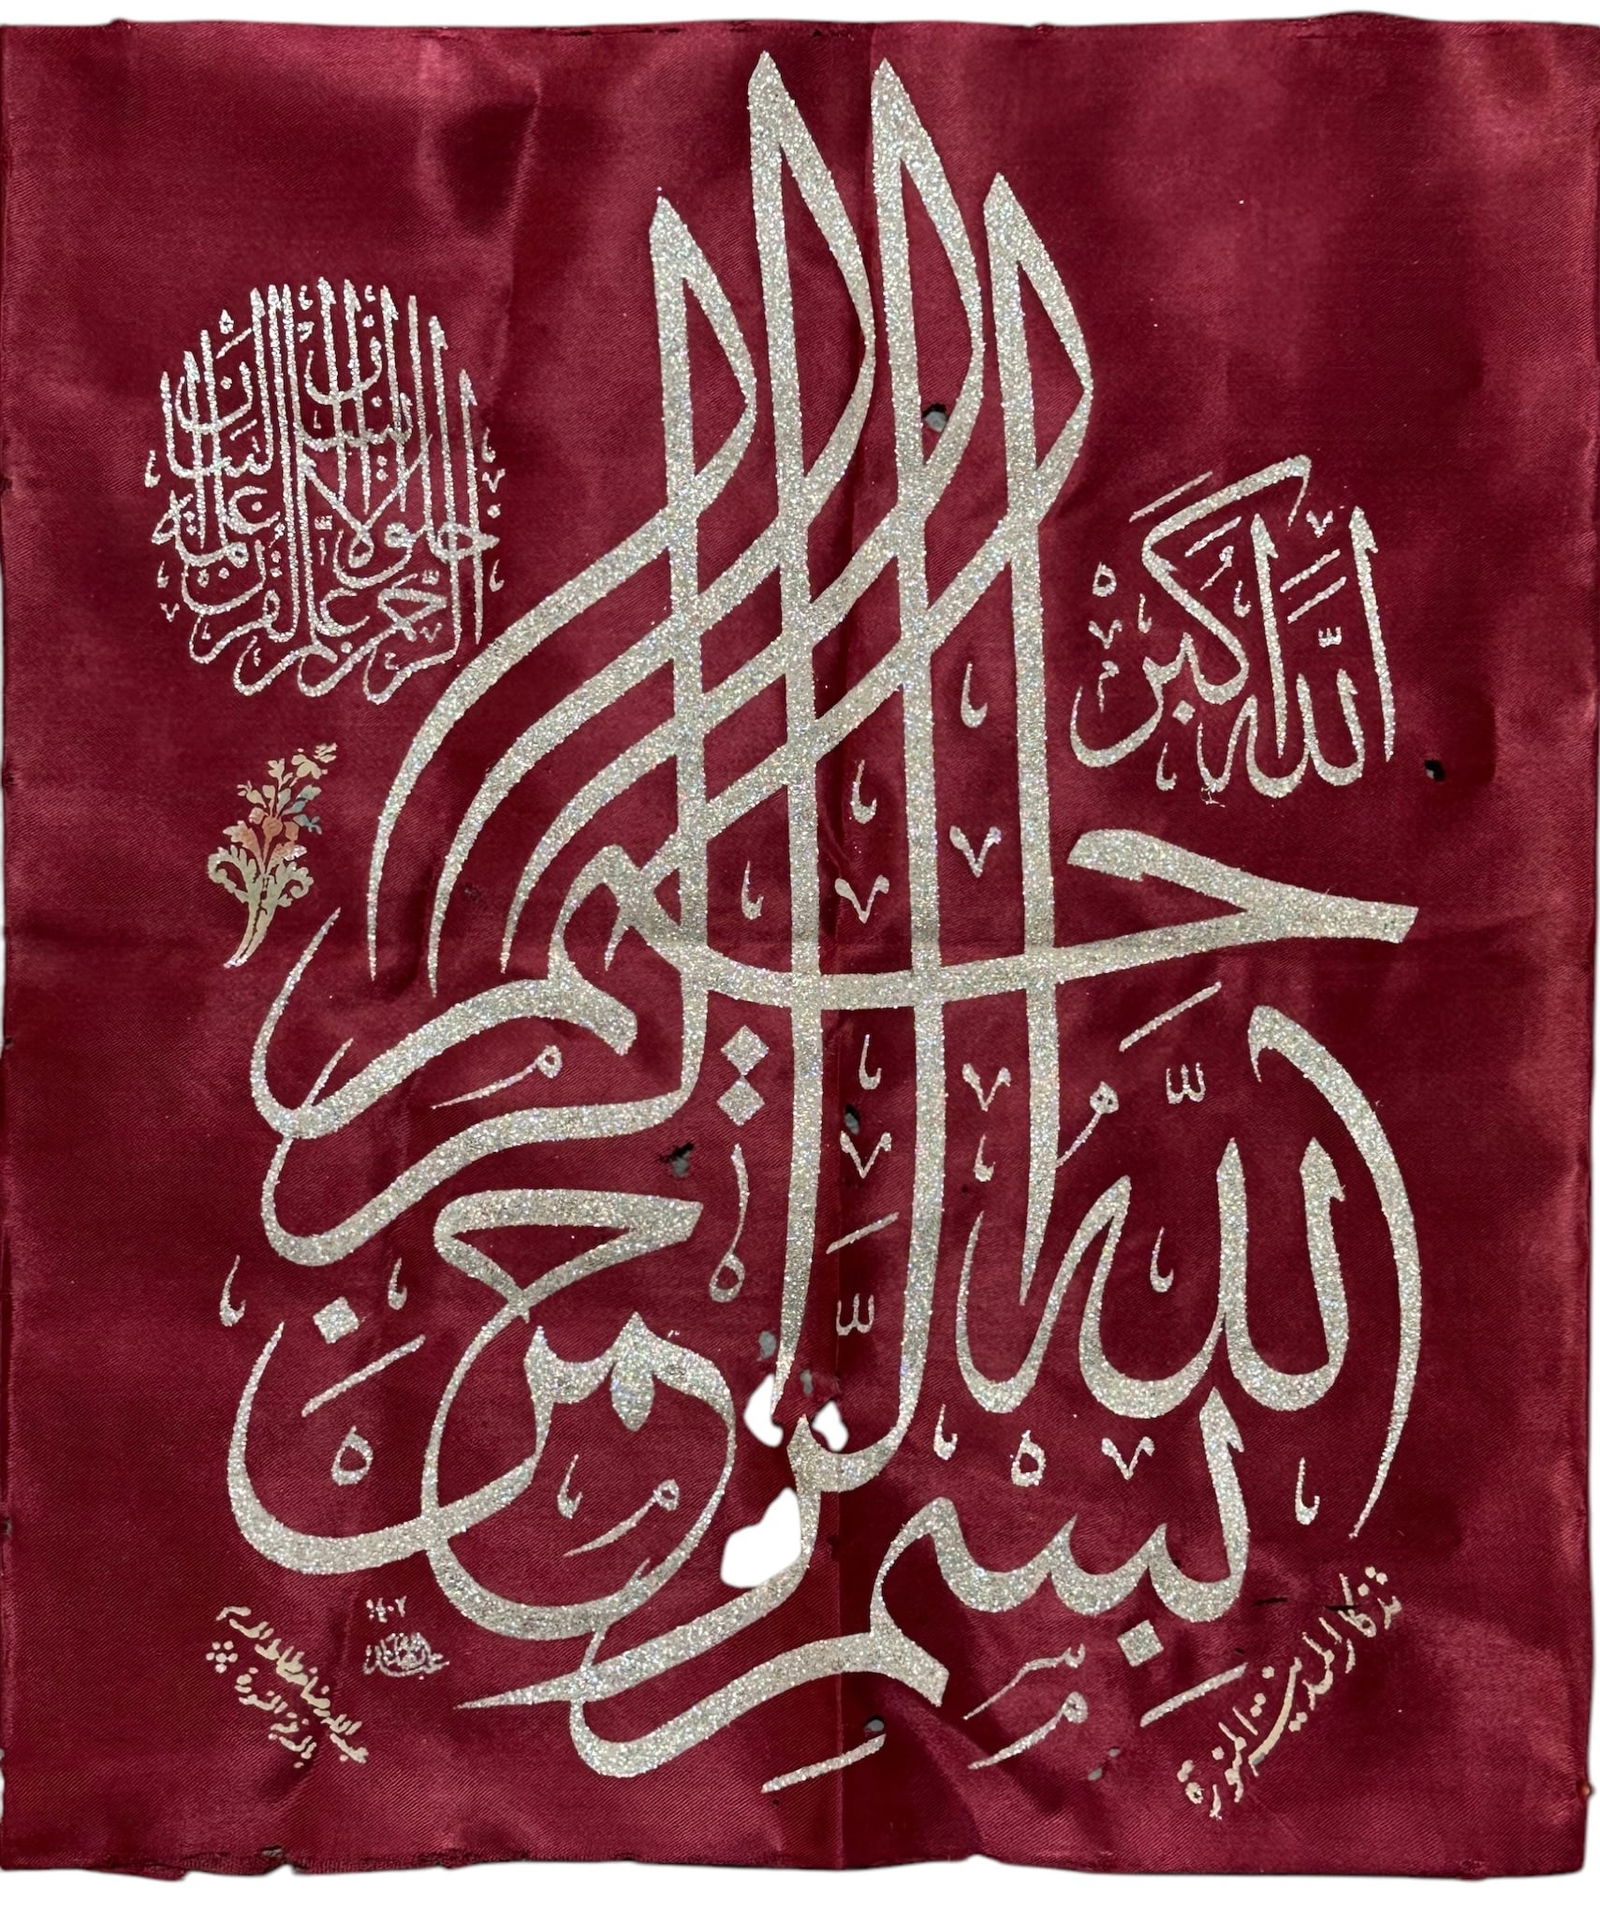 الله أكبر
الرحمن علم القرآن
خلق الإنسان علمه البيان
بسم الله الرحمن الرحيم
تذكار المدينة المنورة
عبد الله رضا
١٤٠٢